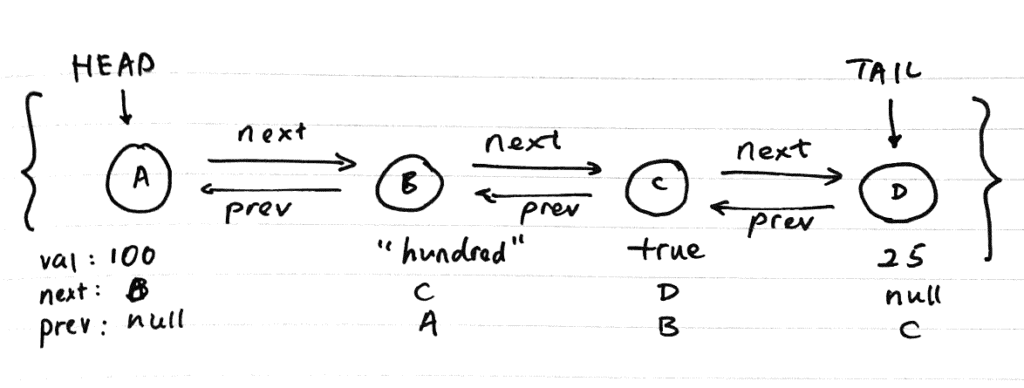 HEAD TAIL
next next next
A B C D
prev prev prev
val: 100 "hundred" true 25
next: B C D null
prev: null A B C